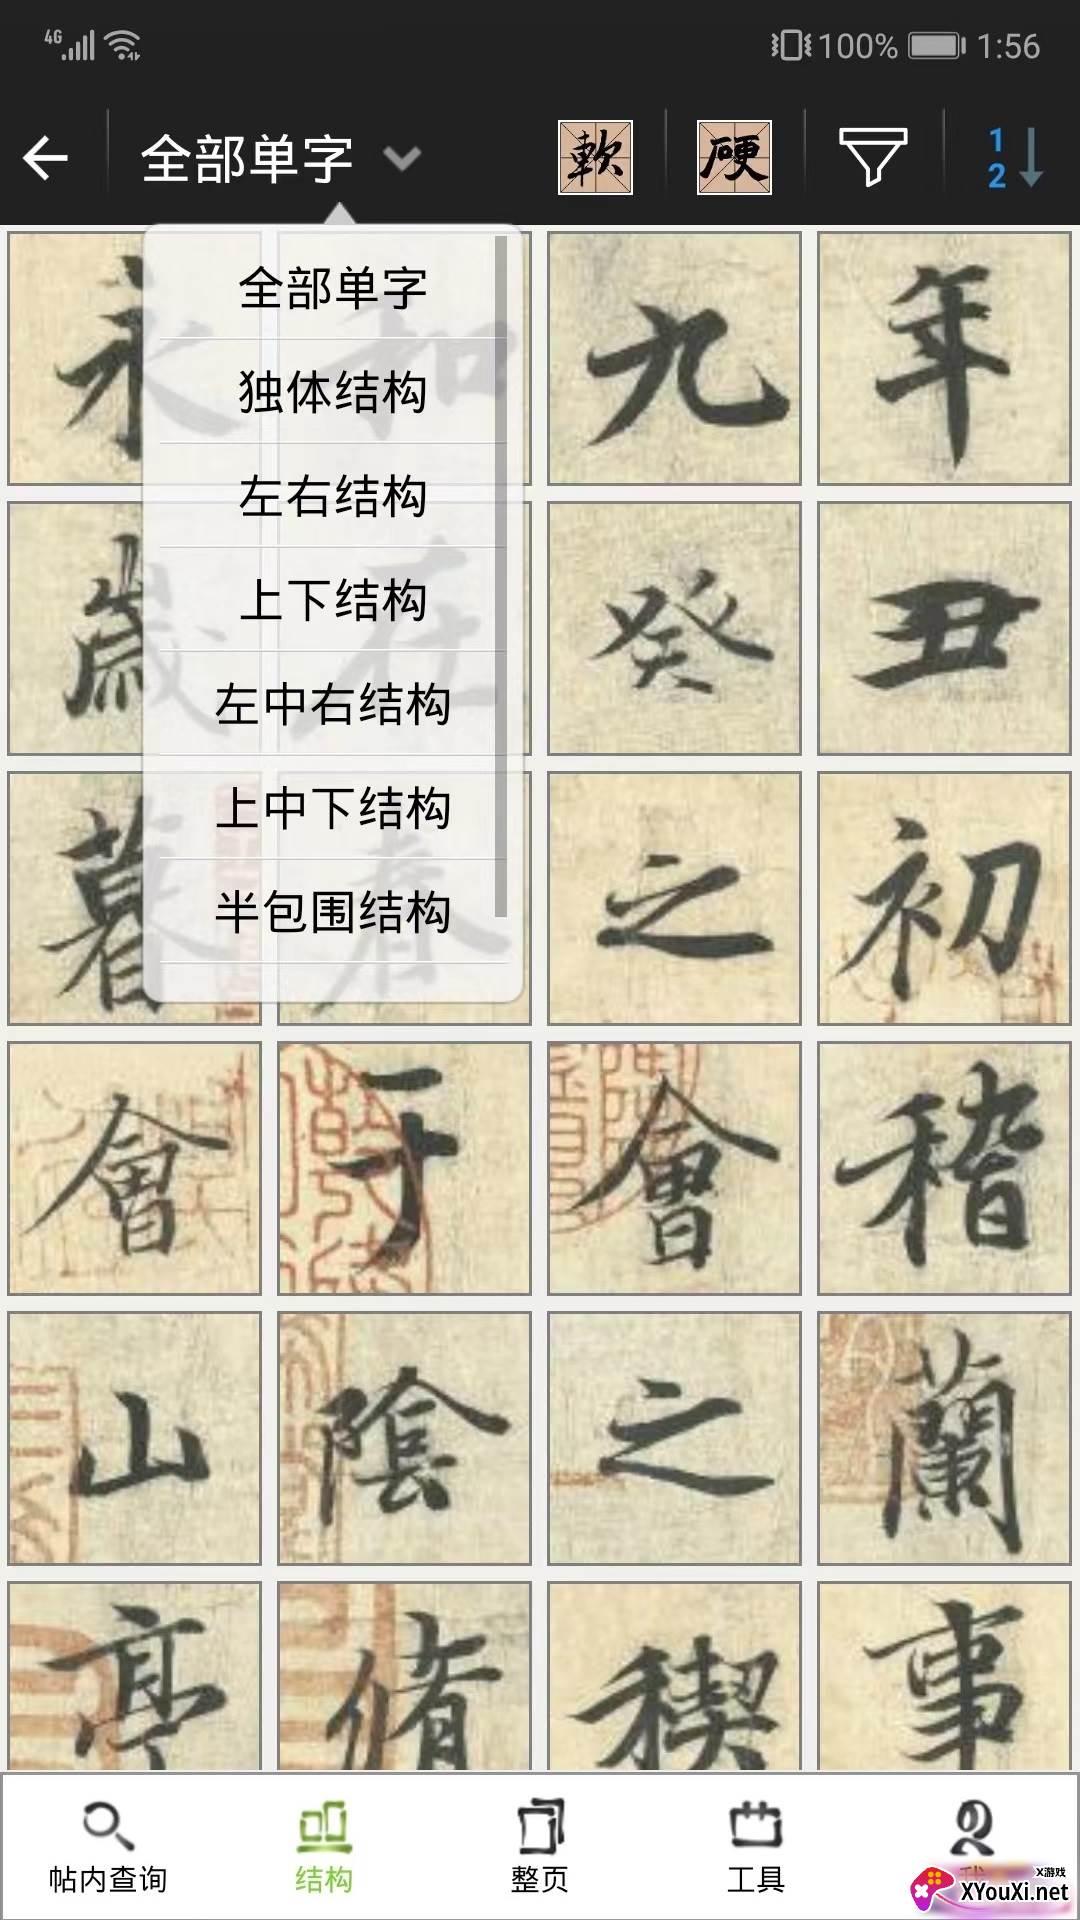 4G 100% 1:56
全部单字 軟 硬 1 2
全部单字
独体结构
左右结构
上下结构
左中右结构
上中下结构
半包围结构
永 和 九 年
歲 在 癸 丑
暮 春 之 初
會 于 會 稽
山 陰 之 蘭
亭 脩 稧 事
帖内查询 结构 整页 工具 我
X游戏
XYouXi.net